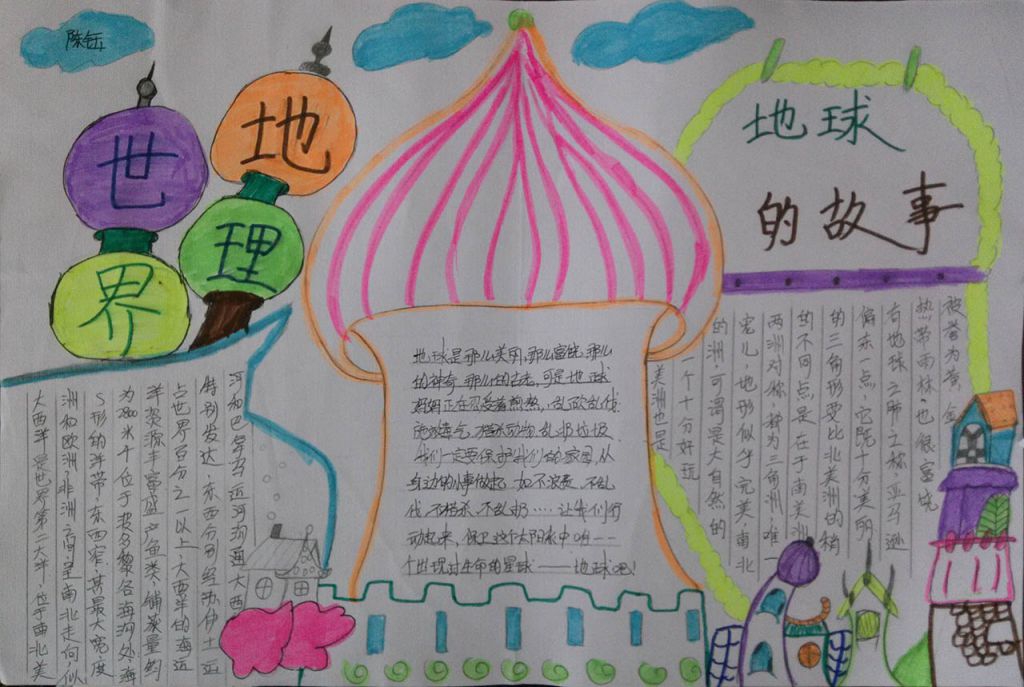 陈钰
世界
地理
地球
的故事
地球是那么美丽,那么富饶,那么
的神奇,那么的古老,可是地球
妈妈正在忍受着煎熬,乱砍乱伐
毒气、捕杀动物、乱扔垃圾
我们一定要保护我们的家园,从
身边的小事做起,如不浪费、不乱
伐、不捕杀、不乱扔……让我们行
动起来,保卫这个太阳系中唯一一
个出现过生命的星球——地球吧!
大西洋是世界第二大洋,位于南北美
洲和欧洲、非洲之间,呈南北走向,似
S形的洋带,东西窄,其最大宽度
为2800米,位于波多黎各海沟处,海
洋资源丰富,盛产鱼类,捕获量约
占世界百分之一以上,大西洋的海运
特别发达,东西分别经苏伊士运
河和巴拿马运河沟通大西
美洲也是
一个十分好玩
的洲,可谓是大自然的
宠儿,地形似乎完美,南北
两洲对称,称为三角洲,唯一
的不同点是在于南美洲
的三角形要比北美洲的稍
偏东一点,它既十分美丽
有地球之肺之称,亚马逊
热带雨林,也很富饶
被誉为黄金